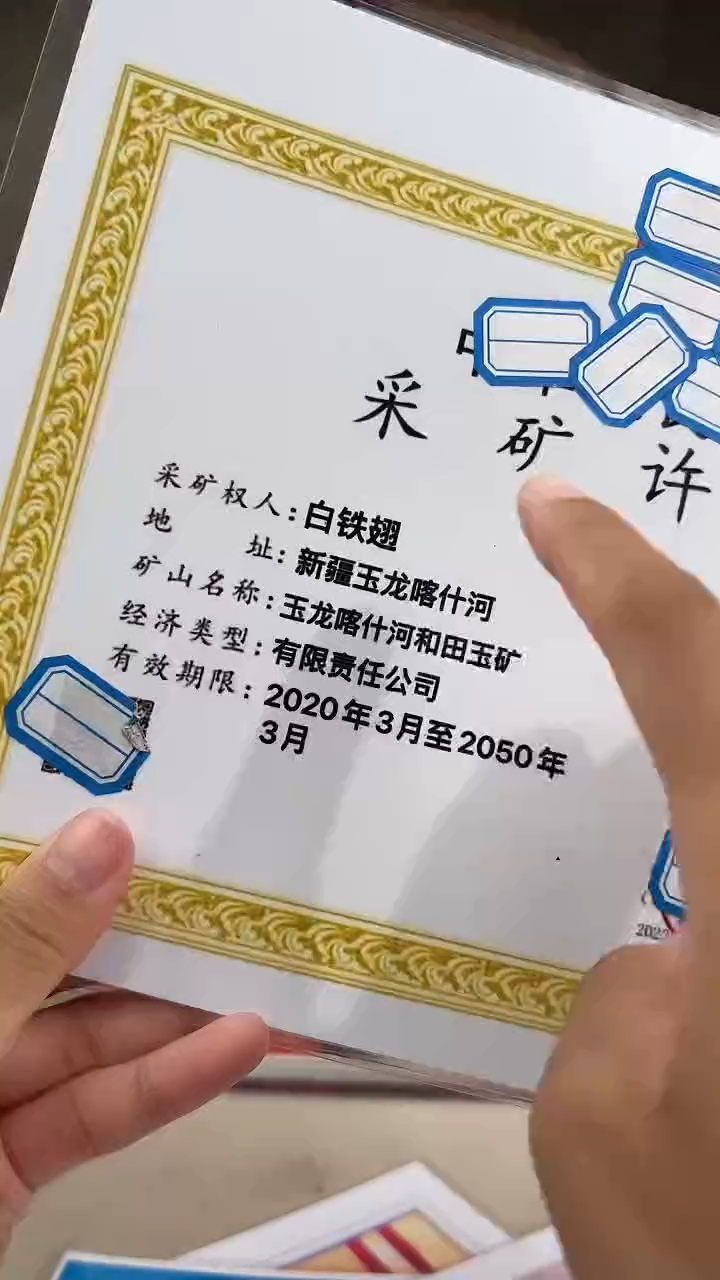 采矿许
采矿权人：白铁翅
地 址：新疆玉龙喀什河
矿山名称：玉龙喀什河和田玉矿
经济类型：有限责任公司
有效期限：2020年3月至2050年
3月